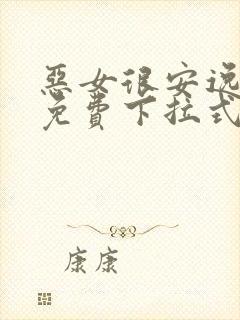 惡女很安逸
免費下拉式
康康